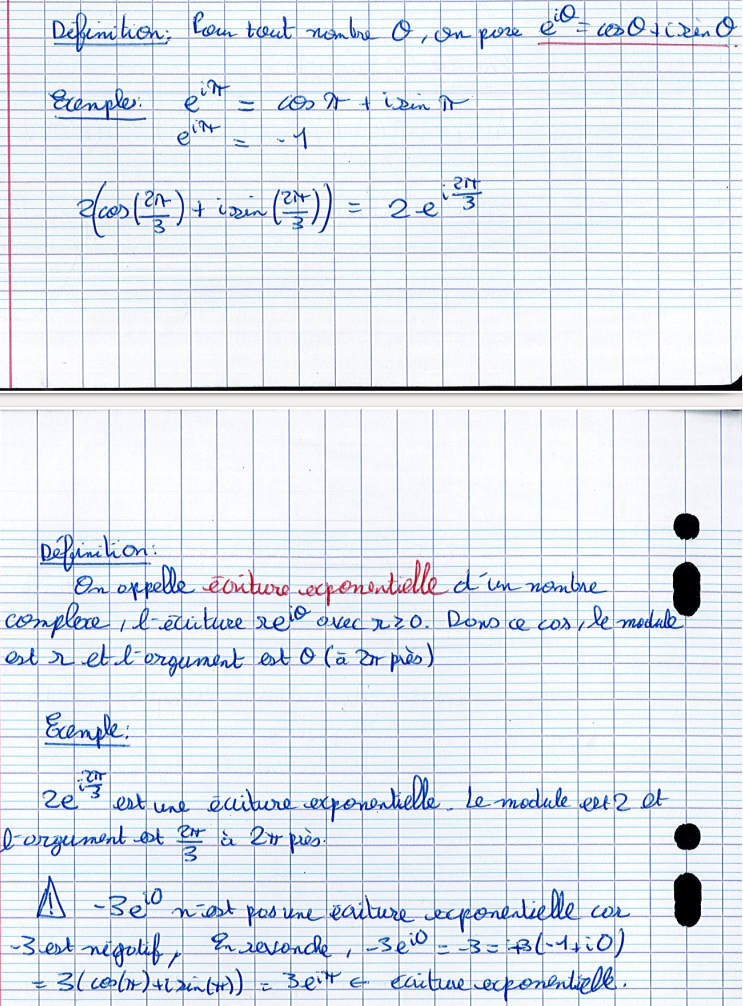 Définition: Pour tout nombre θ, on pose e^{iθ} = cosθ + i sin θ
Exemples: e^{iπ} = cos π + i sin π
e^{iπ} = -1
2(cos(2π/3) + i sin(2π/3)) = 2 e^{i 2π/3}
Définition:
On appelle écriture exponentielle d'un nombre
complexe, l'écriture re^{iθ} avec r≥0. Dans ce cas, le module
est r et l'argument est θ (à 2π près)
Exemple:
2e^{i 2π/3} est une écriture exponentielle. Le module est 2 et
l'argument est 2π/3 à 2π près.
⚠ -3e^{i0} n'est pas une écriture exponentielle car
-3 est négatif, En revanche, -3e^{i0} = -3 = +3(-1+i0)
= 3(cos(π)+i sin(π)) = 3e^{iπ} ← écriture exponentielle.